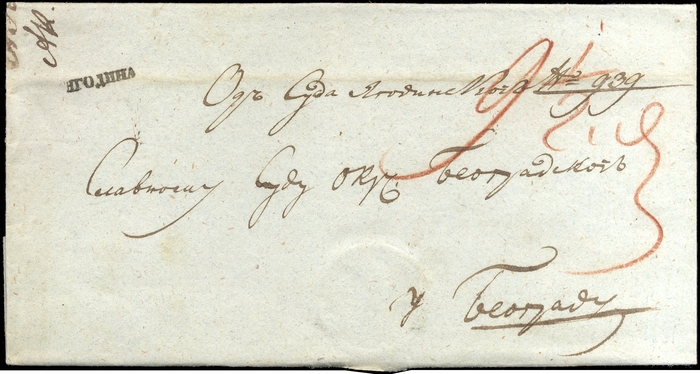 ЯГОДИНА
Одъ Суда Ягодинског № 939
Славном у Суду окр. Београдскогъ
у Београду